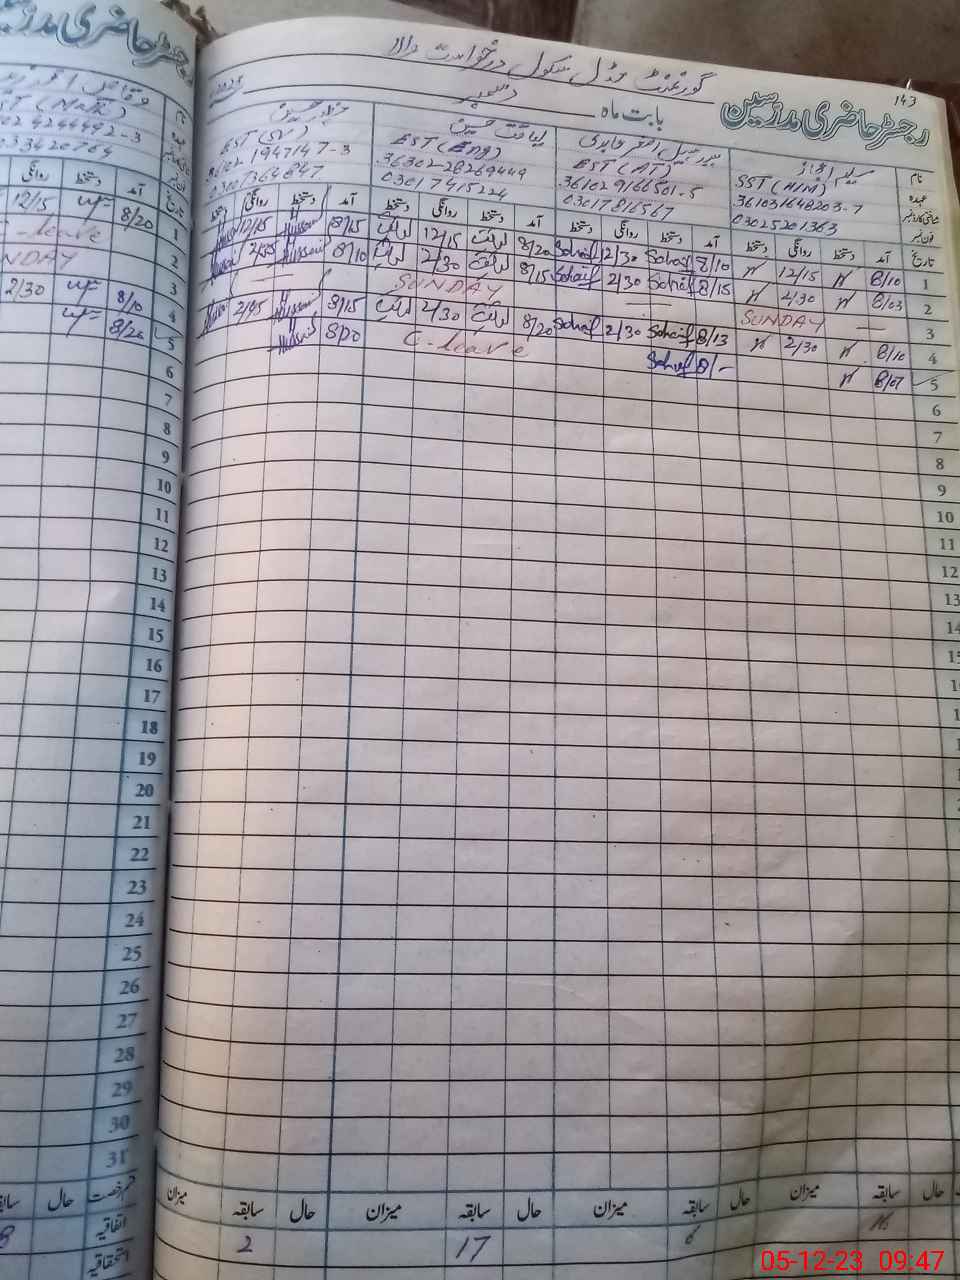 143
گورنمنٹ مڈل سکول درخواست
رجسٹر حاضری مدرسین بابت ماہ دسمبر 2023
نام
عہدہ SST (H/M) EST (AT) EST (Eng) EST (SV)
شناختی کارڈ نمبر 361031648203-7 361029166501-5 36302-28269449 36102 1947147-3
فون نمبر 03025201363 03017816567 03017415224 03007364847
تاریخ آمد دستخط روانگی دستخط آمد دستخط روانگی دستخط آمد دستخط روانگی دستخط آمد دستخط روانگی دستخط
1 8/10 12/15 8/10 Sohaif 12/30 Sohaif 8/20 لیاقت 12/15 لیاقت 8/15 Hussain 12/15
2 8/03 2/30 8/15 Sohaif 2/30 Sohaif 8/15 لیاقت 2/30 لیاقت 8/10 Hussain 2/45
3 SUNDAY — — SUNDAY —
4 8/10 2/30 8/13 Sohaif 2/30 Sohaif 8/20 لیاقت 2/30 لیاقت 8/15 Hussain 2/45
5 8/07 8/- Sohaif C-leave Hussain
6
7
8
9
10
11
12
13
14
15
حال سابقہ میزان حال سابقہ میزان حال سابقہ میزان حال سابقہ میزان
16 6 17 2
رجسٹر حاضری مدرسین
نام
عہدہ
شناختی کارڈ نمبر 4244492-3
فون نمبر 0333420764
تاریخ آمد دستخط روانگی
1 8/20 12/15
2 C-leave
3 SUNDAY
4 8/10 2/30
5 8/20
6
7
8
9
10
11
12
13
14
15
16
17
18
19
20
21
22
23
24
25
26
27
28
29
30
31
قسم رخصت حال سابقہ
اتفاقیہ 8
استحقاقیہ
05-12-23 09:47